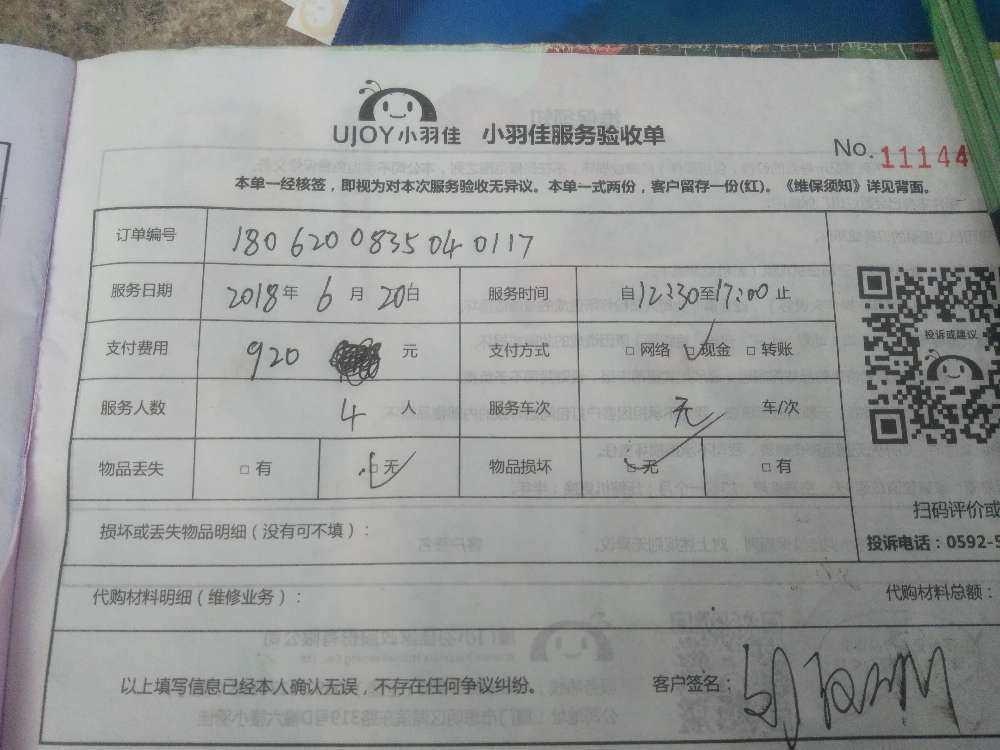 UJOY小羽佳 小羽佳服务验收单
No. 11144
本单一经核签，即视为对本次服务验收无异议。本单一式两份，客户留存一份(红)。《维保须知》详见背面。
订单编号 180620083504 0117
服务日期 2018年 6 月 20日 服务时间 自12:30至17:00止
支付费用 920 元 支付方式 □网络 ☑现金 □转账
服务人数 4 人 服务车次 无 车/次
物品丢失 □有 ☑无 物品损坏 ☑无 □有
投诉或建议
扫码评价或
投诉电话：0592-5
损坏或丢失物品明细（没有可不填）：
代购材料明细（维修业务）： 代购材料总额：
以上填写信息已经本人确认无误，不存在任何争议纠纷。 客户签名：